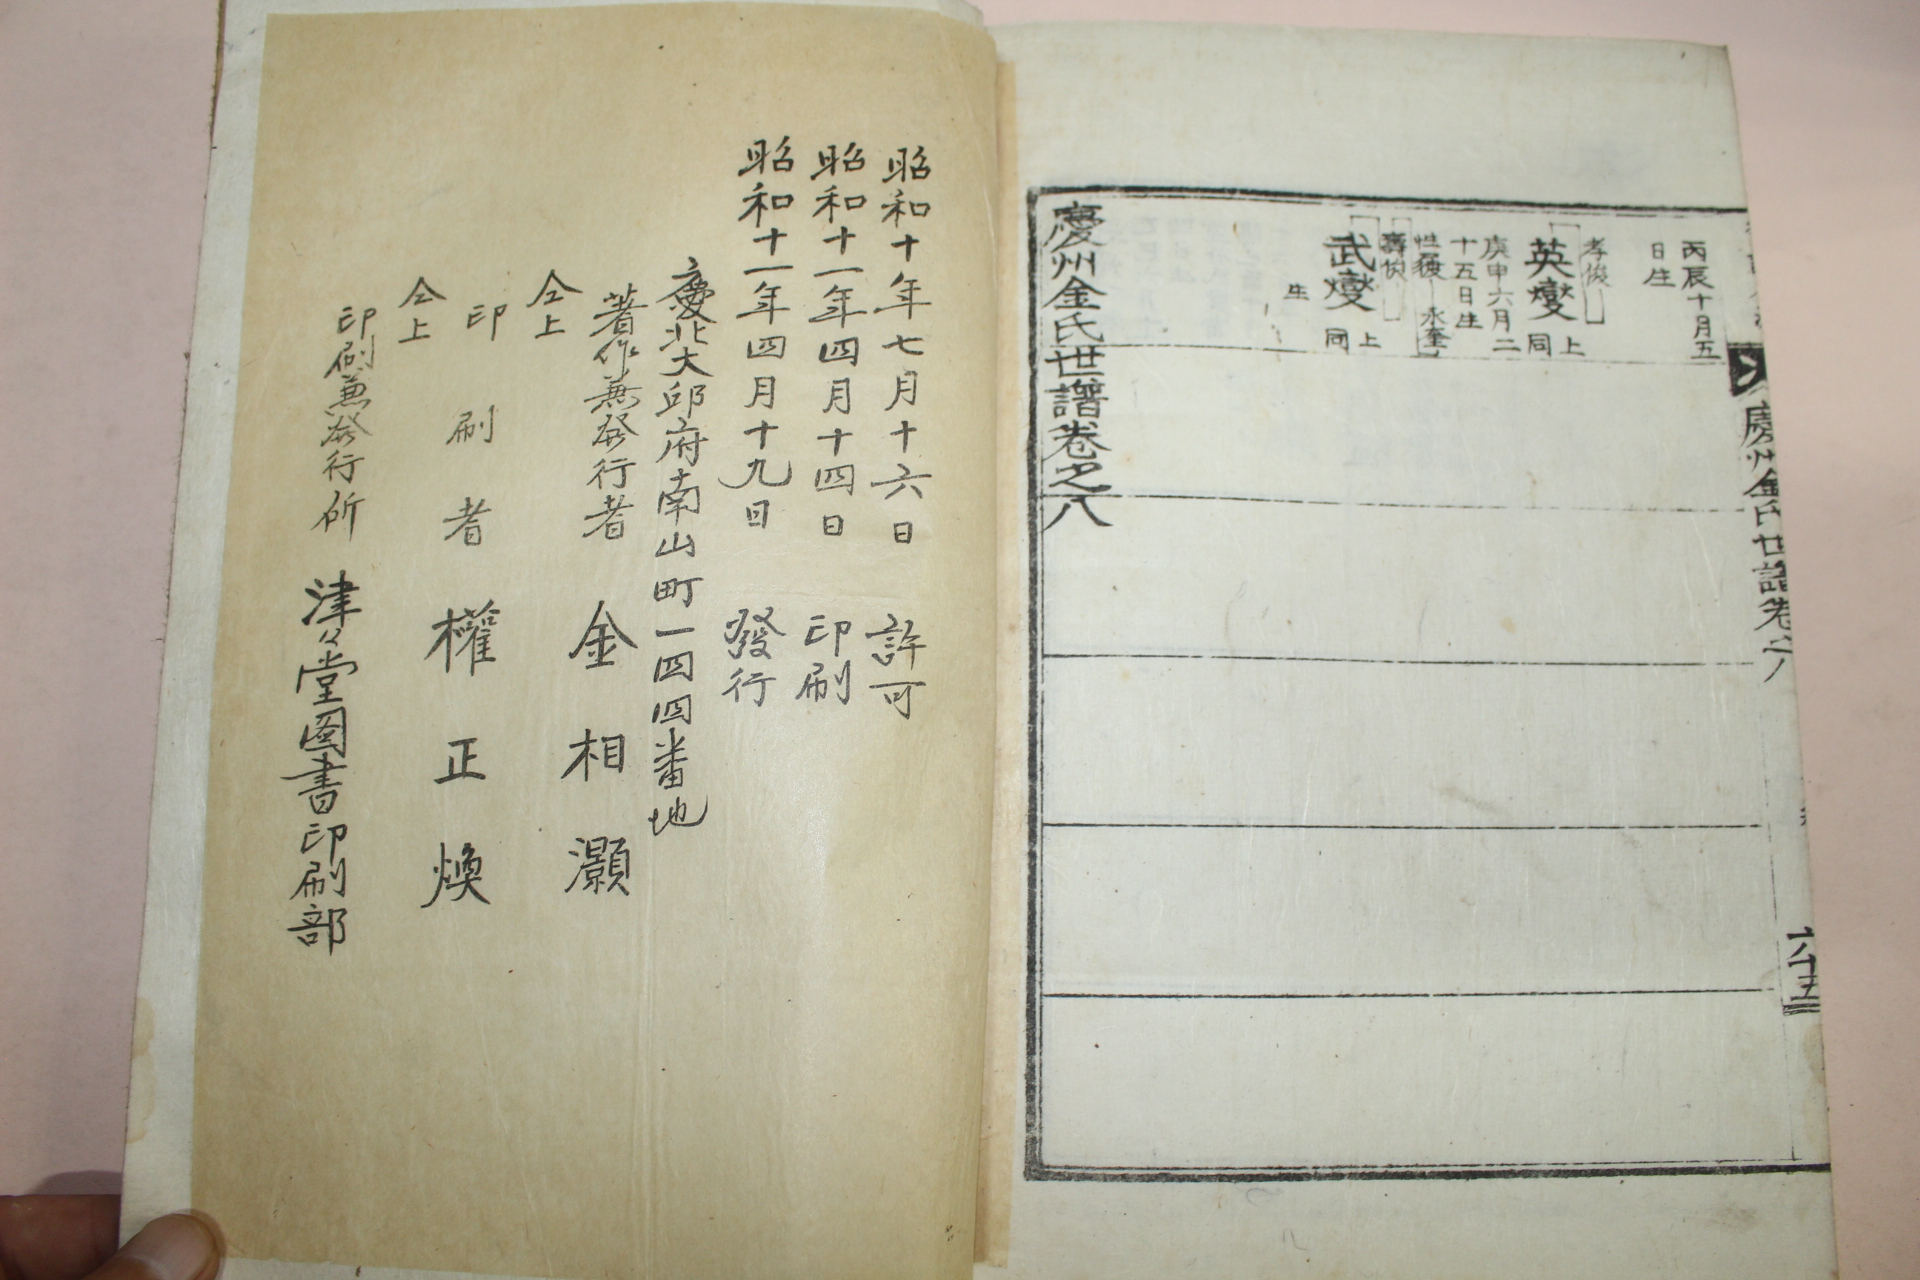 慶州金氏世譜卷之八
六十五
丙辰十月五
日生
孝俊
英燮
上
同
庚申六月二
十五日生
性復
永奎
壽俊
武燮
上
同
生
慶州金氏世譜卷之八
昭和十年七月十六日 許可
昭和十一年四月十四日 印刷
昭和十一年四月十九日 發行
慶北大邱府南山町一四四番地
著作兼發行者 金相灝
仝上
印刷者 權正煥
仝上
印刷兼發行所 津々堂圖書印刷部